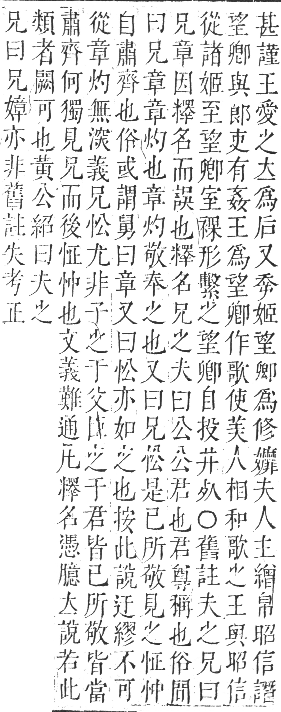 甚謹王愛之立爲后又幸姬望卿爲修靡夫人主繒帛昭信譖
望卿與郎吏有姦王爲望卿作歌使美人相和歌之王與昭信
從諸姬至望卿室祼形擊之望卿自投井死○舊註夫之兄曰
兄章因釋名而誤也釋名兄之夫曰公公君也君尊稱也俗間
曰兄章章灼也章灼敬奉之也又曰兄忪是已所敬見之怔忡
自肅齊也俗或謂舅曰章又曰忪亦如之也按此說迂繆不可
從章灼無深義兄忪尤非子之于父臣之于君皆已所敬皆當
肅齊何獨見兄而後怔忡也文義難通凡釋名憑臆立說若此
類者闕可也黃公紹曰夫之
兄曰兄嫜亦非舊註失考正